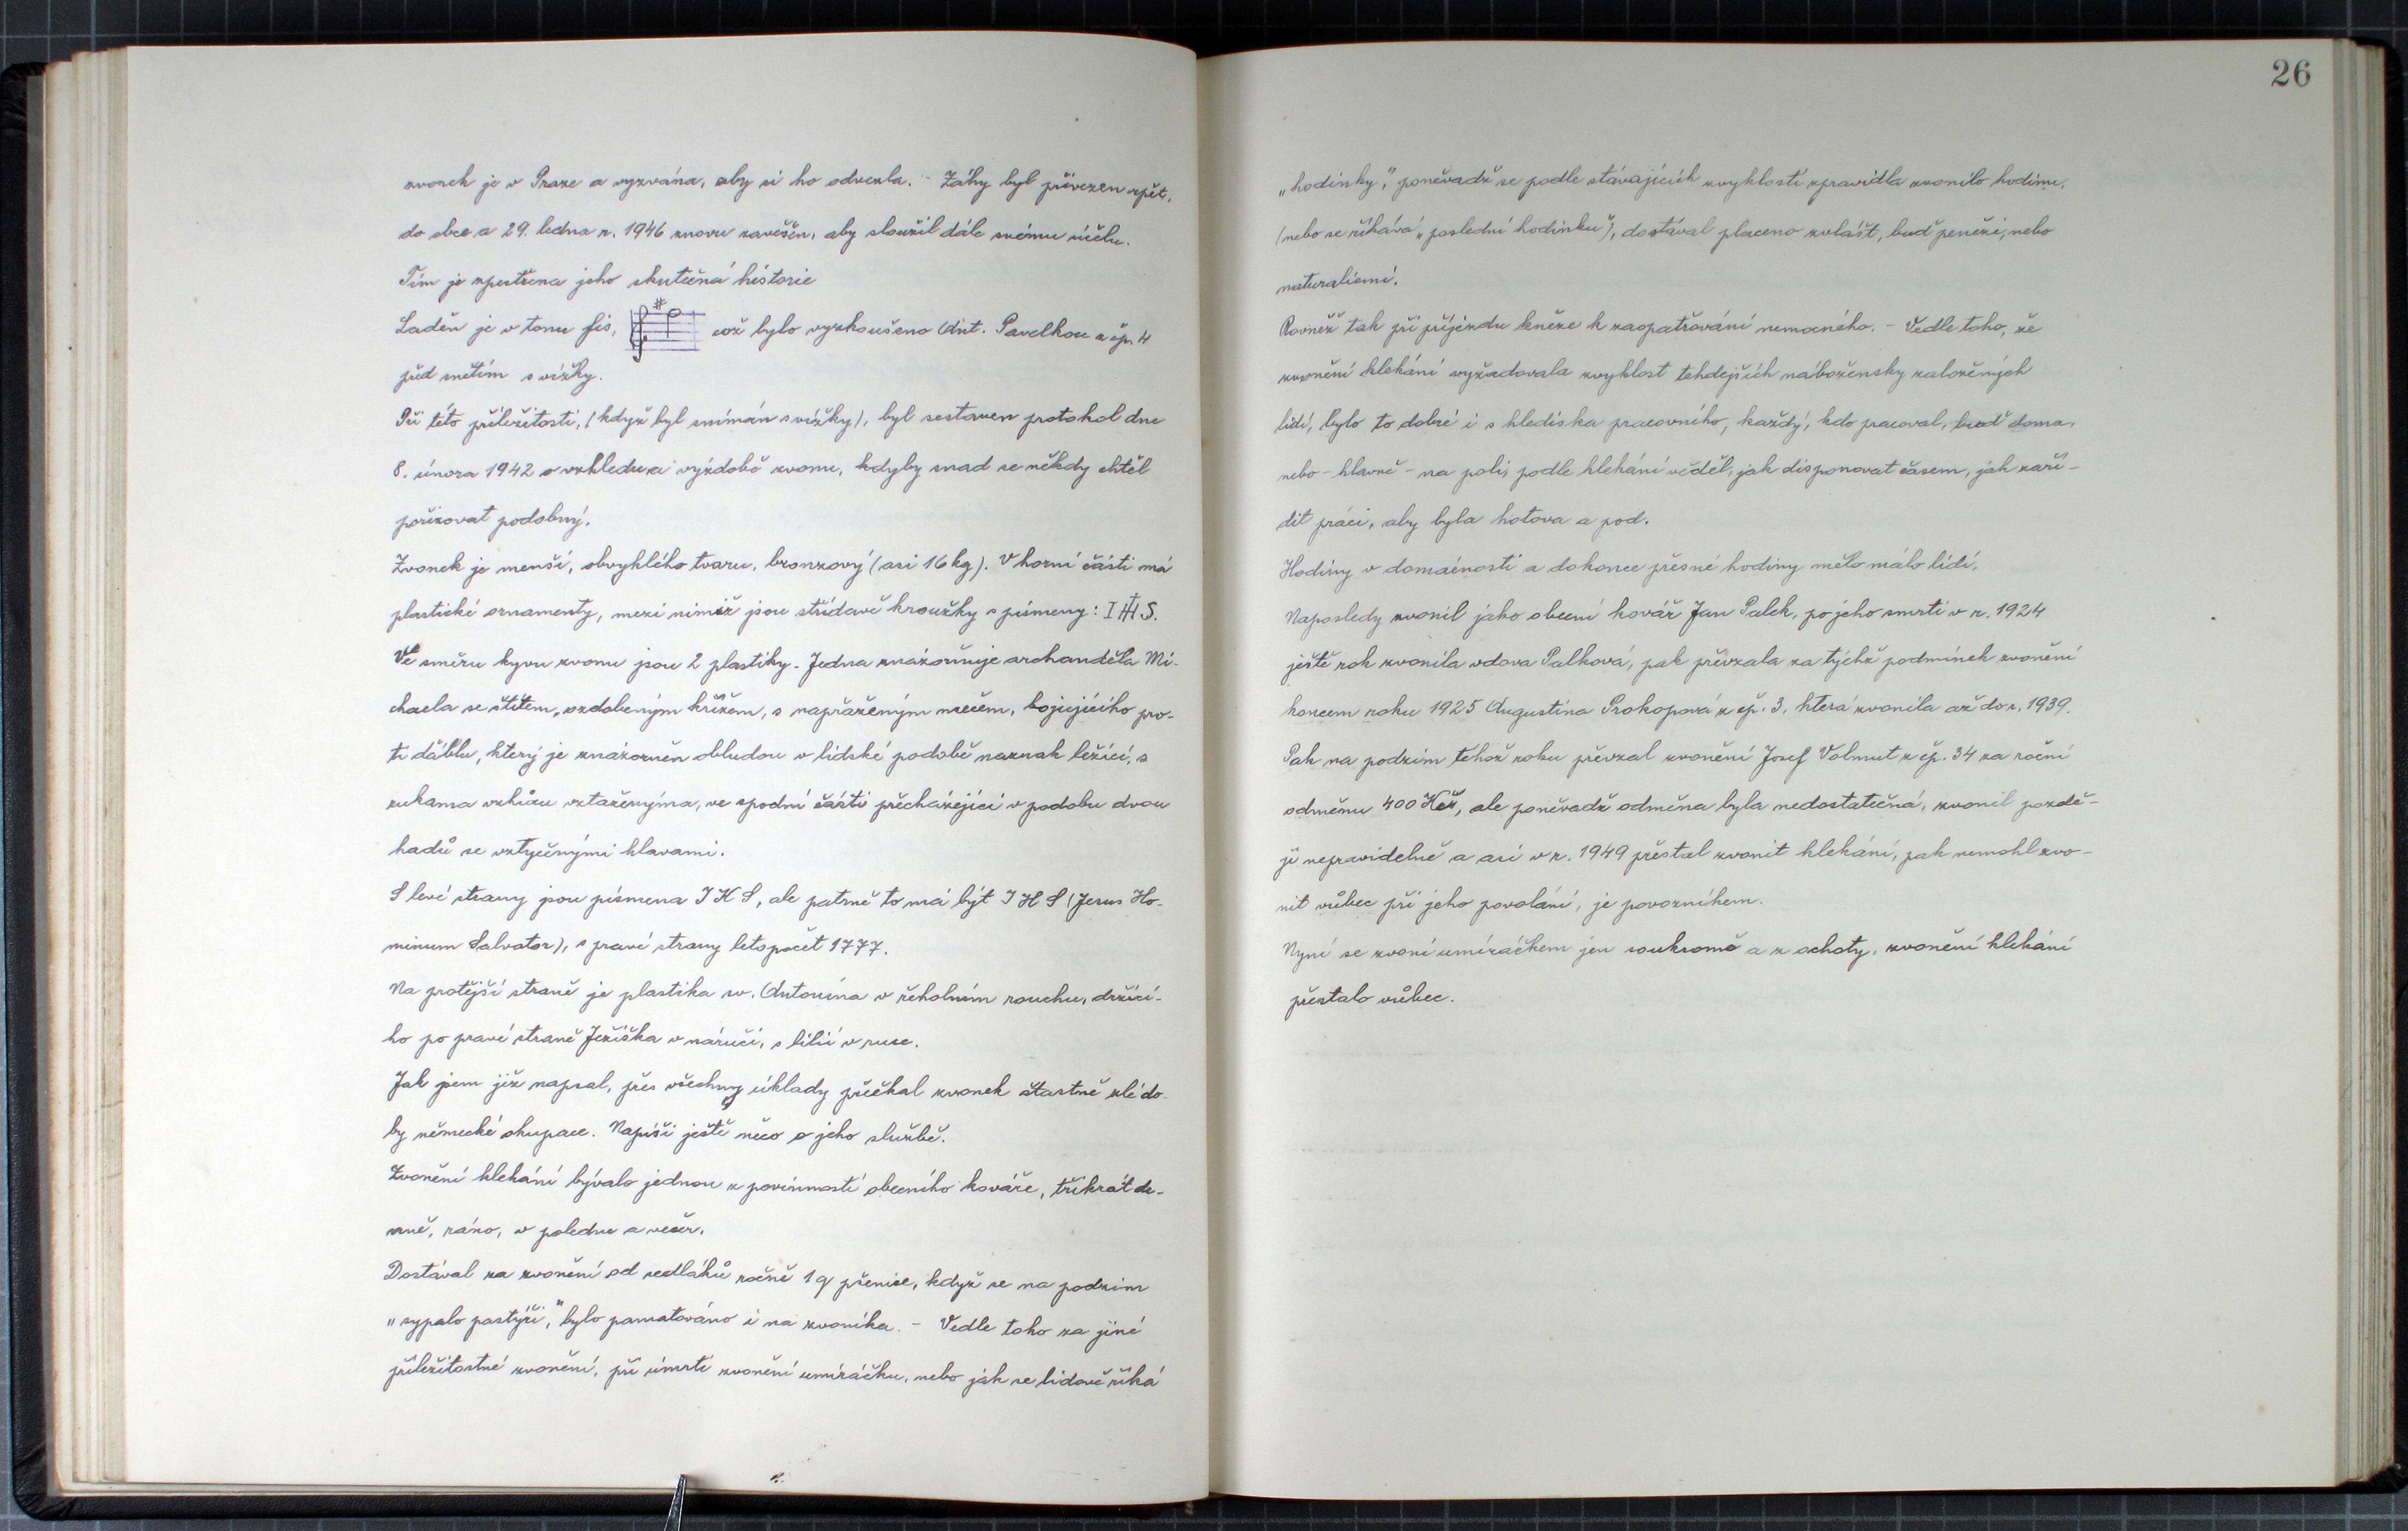 zvonek je v Praze a vyzvána, aby si ho odvezla. - Záhy byl přivezen zpět,
do obce a 29. ledna r. 1946 znovu zavěšen, aby sloužil dále svému účelu.
Tím je zpestřena jeho skutečná historie
Laděn je v tonu fis, což bylo vyzkoušeno Ant. Pavelkou z čp. 4
před snětím s vížky.
Při této příležitosti, (když byl snímán s vížky), byl sestaven protokol dne
8. února 1942 o vzhledu a výzdobě zvonu, kdyby snad se někdy chtěl
pořizovat podobný.
Zvonek je menší, obvyklého tvaru, bronzový (asi 16 kg). V horní části má
plastické ornamenty, mezi nimiž jsou střídavě kroužky s písmeny: I H S.
Ve směru kyvu zvonu jsou 2 plastiky. Jedna znázorňuje archanděla Mi-
chaela se štítem, ozdobeným křížem, s napřaženým mečem, bojujícího pro-
ti ďáblu, který je znázorněn obludou v lidské podobě naznak ležící, s
rukama vzhůru vztaženýma, ve spodní části přecházející v podobu dvou
hadů se vztyčenými hlavami.
S levé strany jsou písmena I K S, ale patrně to má být I H S (Jesus Ho-
minum Salvator), s pravé strany letopočet 1777.
Na protější straně je plastika sv. Antonína v řeholním rouchu, držící-
ho po pravé straně Ježíška v náručí, s lilií v ruce.
Jak jsem již napsal, přes všechny úklady přečkal zvonek šťastně zlé do-
by německé okupace. Napíši ještě něco o jeho službě.
Zvonění klekání bývalo jednou z povinností obecního kováře, třikrát de-
nně, ráno, v poledne a večer.
Dostával za zvonění od sedláků ročně 1 q pšenice, když se na podzim
„sypalo pastýři", bylo pamatováno i na zvoníka. - Vedle toho za jiné
příležitostné zvonění, při úmrtí zvonění umíráčku, nebo jak se lidově říká
26
„hodinky", poněvadž se podle stávajících zvyklostí zpravidla zvonilo hodinu,
(nebo se říkává „poslední hodinku"), dostával placeno zvlášt, buď penězi, nebo
naturaliemi.
Rovněž tak při příjezdu kněze k zaopatřování nemocného. - Vedle toho, že
zvonění klekání vyžadovala zvyklost tehdejších nábožensky založených
lidí, bylo to dobré i s hlediska pracovního, každý, kdo pracoval, buď doma,
nebo - hlavně - na poli, podle klekání věděl, jak disponovat časem, jak zaří-
dit práci, aby byla hotova a pod.
Hodiny v domácnosti a dokonce přesné hodiny mělo málo lidí.
Naposledy zvonil jako obecní kovář Jan Palek, po jeho smrti v r. 1924
ještě rok zvonila vdova Palková, pak převzala za týchž podmínek zvonění
koncem roku 1925 Augustina Prokopová z čp. 3. která zvonila až do r. 1939.
Pak na podzim téhož roku převzal zvonění Josef Volmut z čp. 34 za roční
odměnu 400 Kčs, ale poněvadž odměna byla nedostatečná, zvonil pozdě-
ji nepravidelně a asi v r. 1949 přestal zvonit klekání, pak nemohl zvo-
nit vůbec při jeho povolání, je povozníkem.
Nyní se zvoní umíráčkem jen soukromě a z ochoty, zvonění klekání
přestalo vůbec.